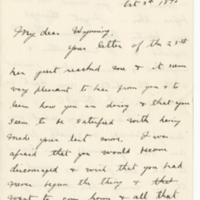 Oct 3rd 1890
My dear Wyoming,
Your letter of the 25th
has just reached me & it seems
very pleasant to hear from you & to
learn how you are doing & that you
seem to be satisfied with being
made your best move. I was
afraid that you would become
discouraged & wish that you had
never begun the thing & that
want to come home & all that